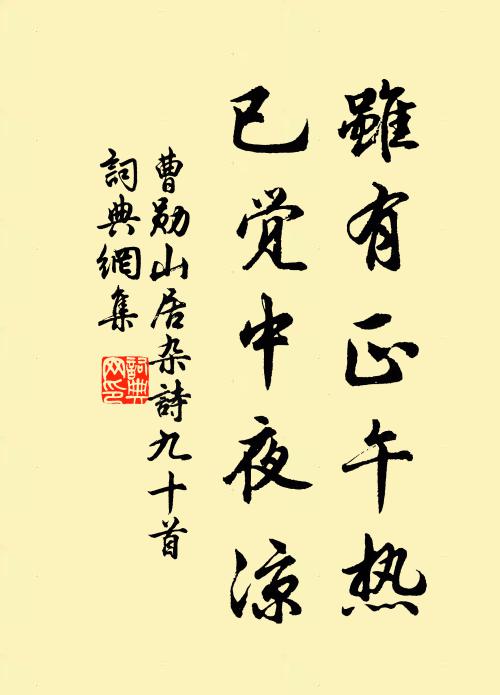 雖有正午热
已觉中夜凉
曹勋山居杂詩九十首
詞典網集
詞典網印